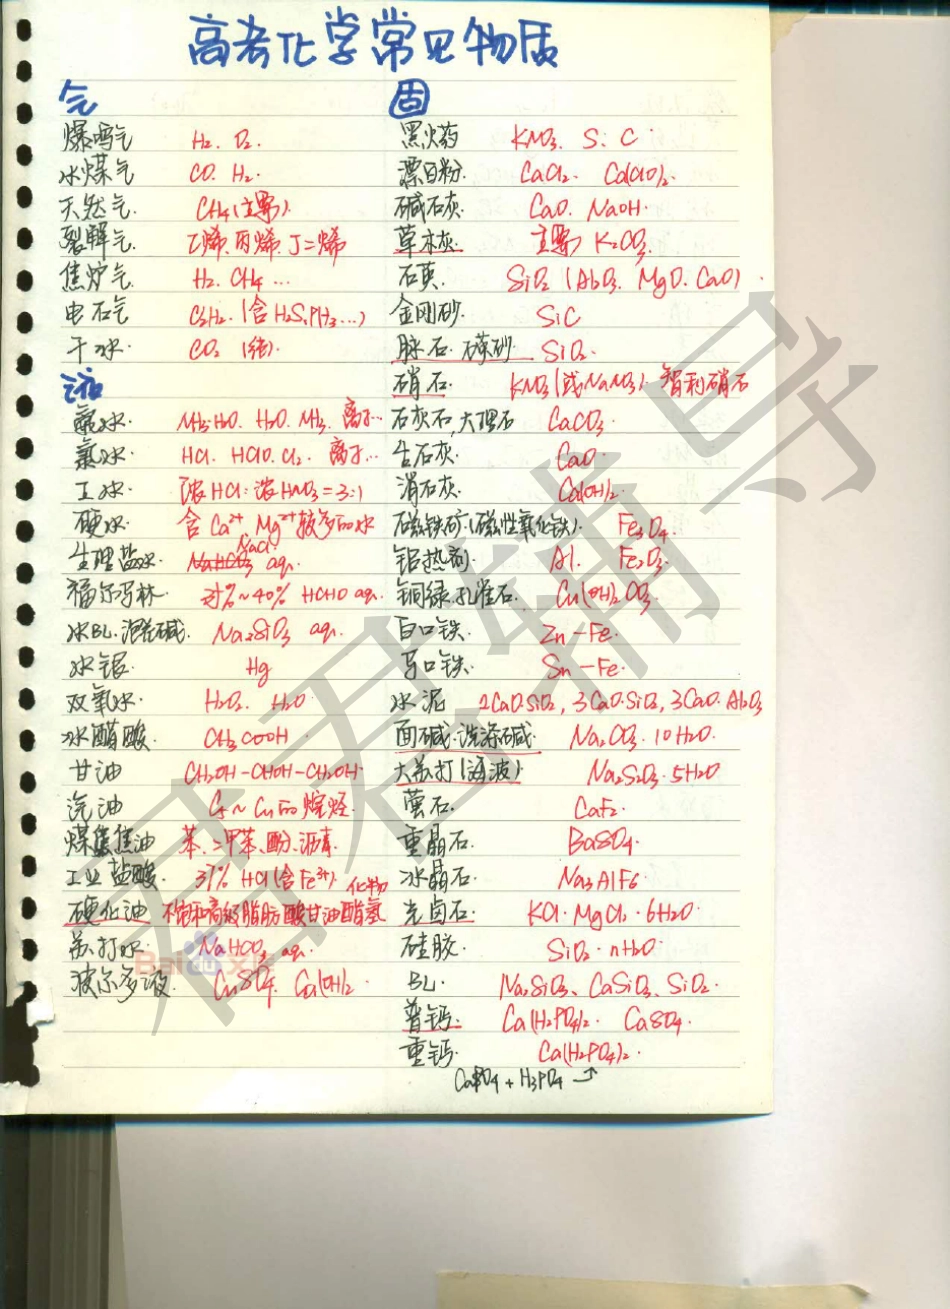 高考化学常见物质
气
爆鸣气 H₂. O₂.
水煤气 CO. H₂.
天然气. CH₄(主要).
裂解气. 乙烯. 丙烯. 丁二烯
焦炉气. H₂. CH₄ ...
电石气 C₂H₂. (含H₂S, PH₃...)
干冰. CO₂ (结)
液
氨水. NH₃·H₂O. H₂O. NH₃. 离子...
氯水. HCl. HClO. Cl₂. 离子...
王水. 浓HCl:浓HNO₃=3:1
硬水. 含Ca²⁺ Mg²⁺较多的水
生理盐水. NaCl aq.
福尔马林 37%~40% HCHO aq.
水BL. 泡花碱. Na₂SiO₃ aq.
水银. Hg
双氧水. H₂O₂. H₂O.
冰醋酸. CH₃COOH.
甘油 CH₂OH-CHOH-CH₂OH.
汽油 C₅~C₁₁的烷烃.
煤焦油 苯. 二甲苯. 酚. 沥青.
工业盐酸. 37% HCl(含Fe³⁺).
硬化油 不饱和高级脂肪酸甘油酯氢化物
苏打水. NaHCO₃ aq.
波尔多液. CuSO₄. Ca(OH)₂.
固
黑火药 KNO₃. S. C.
漂白粉. CaCl₂. Ca(ClO)₂.
碱石灰. CaO. NaOH.
草木灰. 主要 K₂CO₃.
石英. SiO₂ (Al₂O₃. MgO. CaO).
金刚砂. SiC
脉石. 硅砂. SiO₂.
硝石. KNO₃(或NaNO₃). 智利硝石
石灰石, 大理石 CaCO₃.
生石灰. CaO.
消石灰. Ca(OH)₂.
磁铁矿.(磁性氧化铁). Fe₃O₄.
铝热剂. Al. Fe₂O₃.
铜绿. 孔雀石. Cu₂(OH)₂CO₃.
白口铁. Zn-Fe.
马口铁. Sn-Fe.
水泥 2CaO·SiO₂, 3CaO·SiO₂, 3CaO·Al₂O₃
面碱. 洗涤碱. Na₂CO₃·10H₂O.
大苏打(海波) Na₂S₂O₃·5H₂O
萤石. CaF₂.
重晶石. BaSO₄.
冰晶石. Na₃AlF₆.
光卤石. KCl·MgCl₂·6H₂O.
硅胶. SiO₂·nH₂O.
BL. Na₂SiO₃、CaSiO₃、SiO₂.
普钙. Ca(H₂PO₄)₂. CaSO₄.
重钙. Ca(H₂PO₄)₂.
+ H₃PO₄
君君辅导